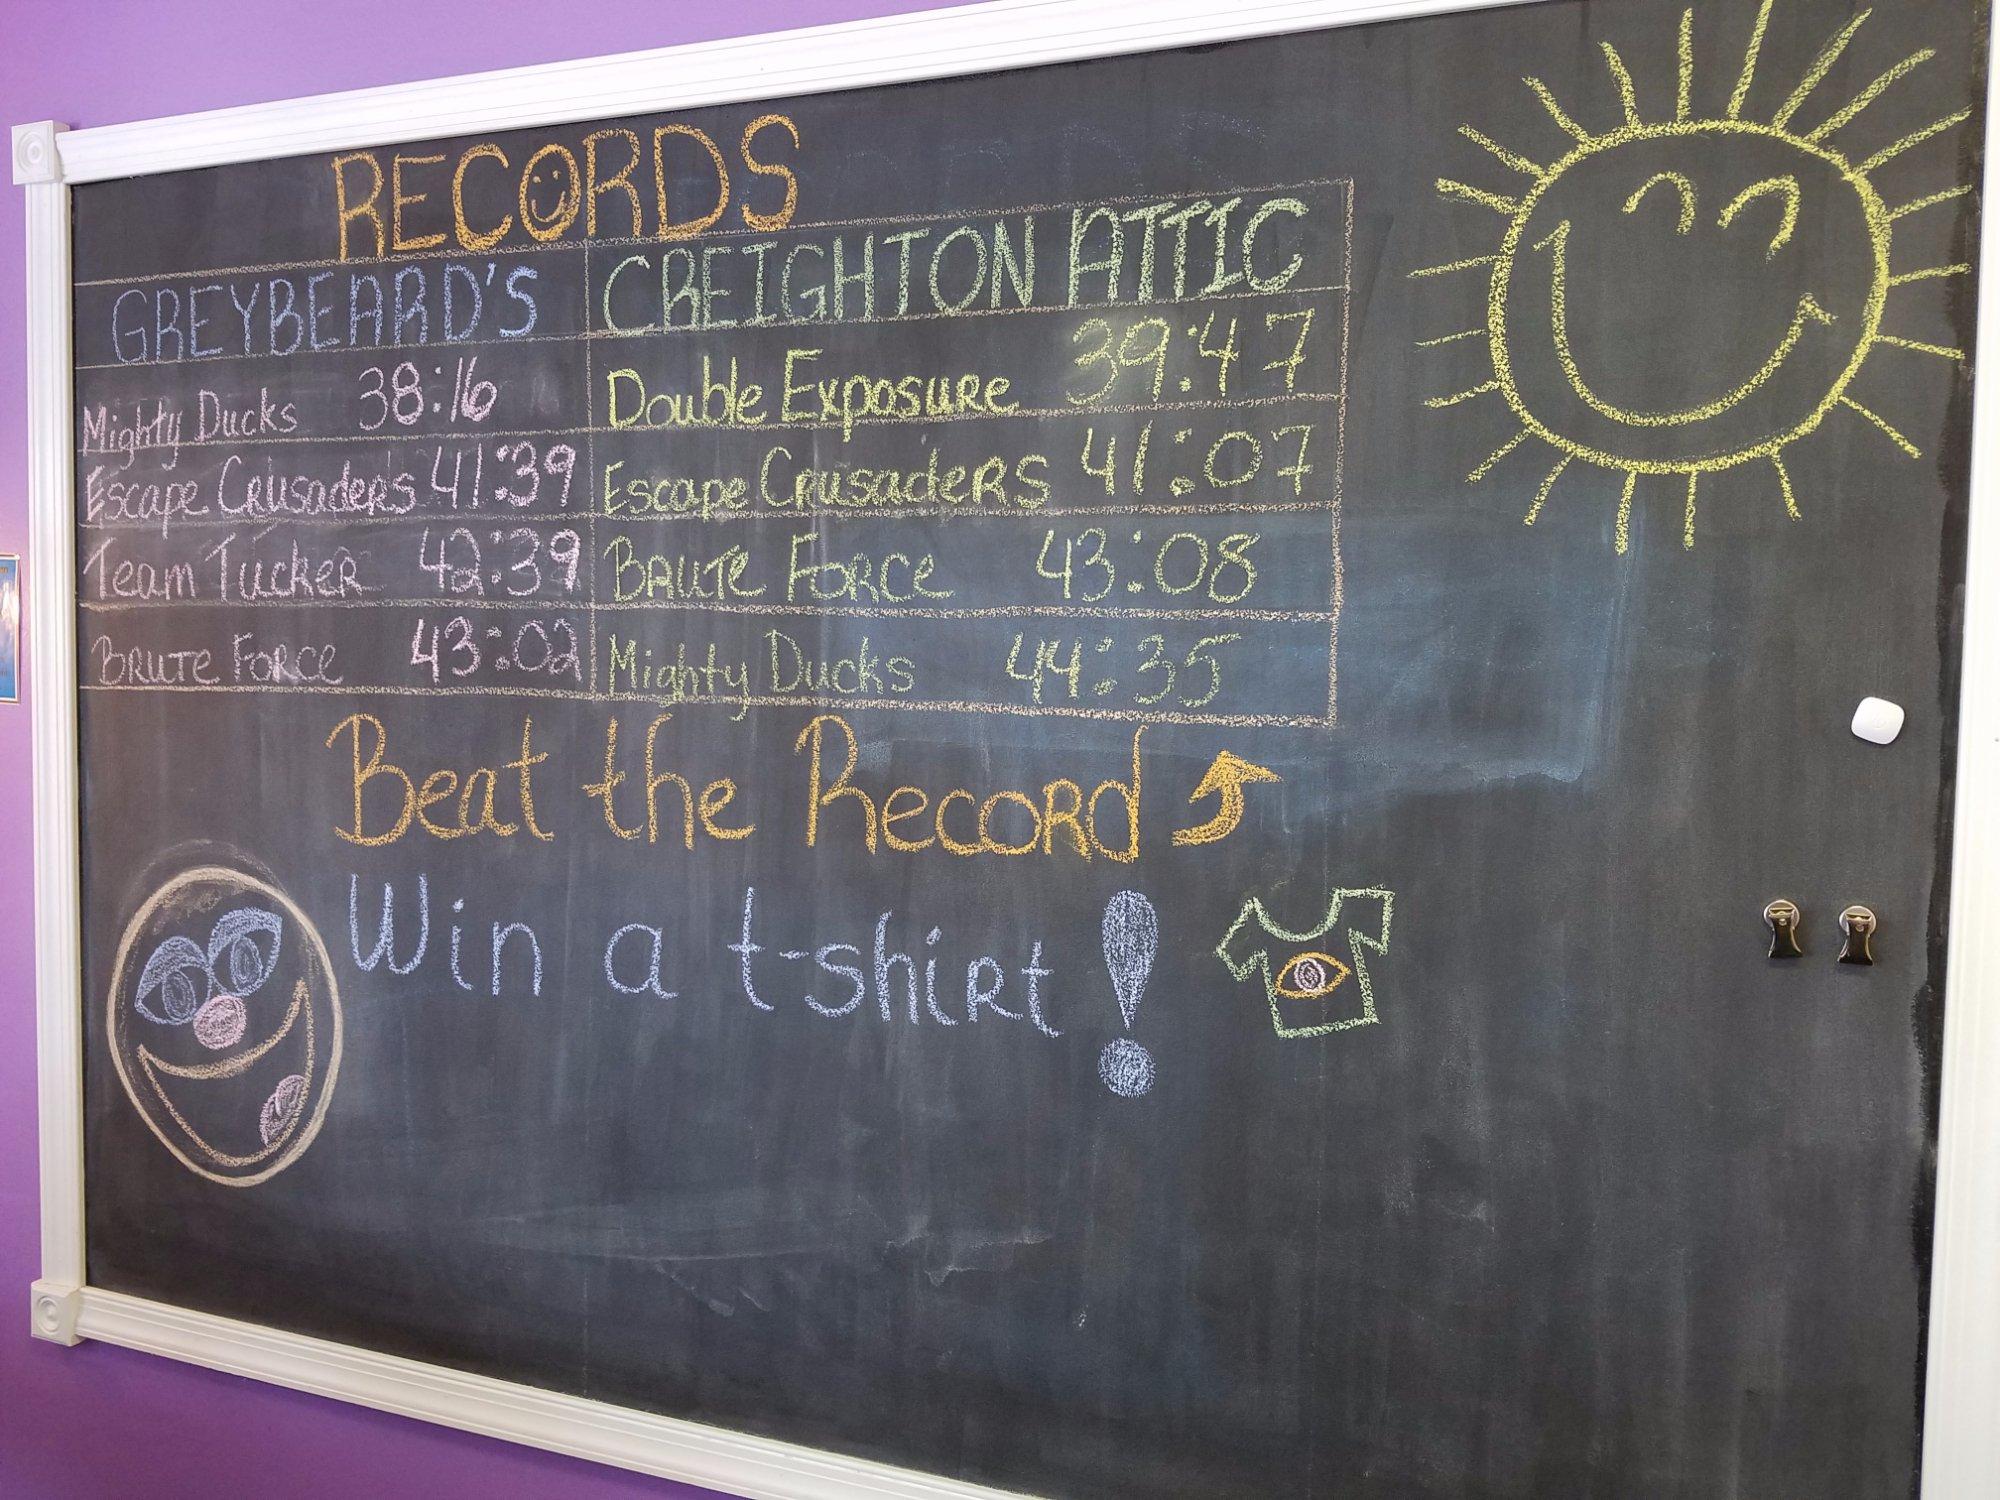 RECORDS
GREYBEARD'S CREIGHTON ATTIC
Mighty Ducks 38:16 Double Exposure 39:47
Escape Crusaders 41:39 Escape Crusaders 41:07
Team Tucker 42:39 Brute Force 43:08
Brute Force 43:02 Mighty Ducks 44:35
Beat the Record
Win a t-shirt!